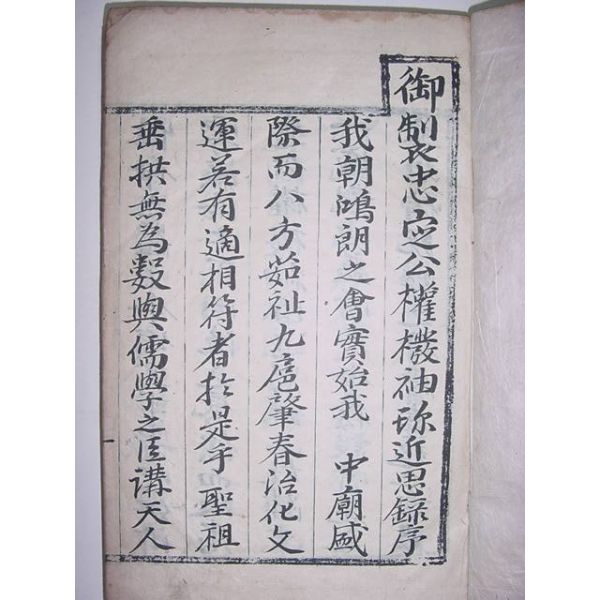 御製忠定公權橃袖珎近思錄序
我朝鴻朗之會實始我 中廟盛
際而八方茹祉九扈肇春治化文
運若有適相符者於是乎 聖祖
垂拱無為數與儒學之臣講天人